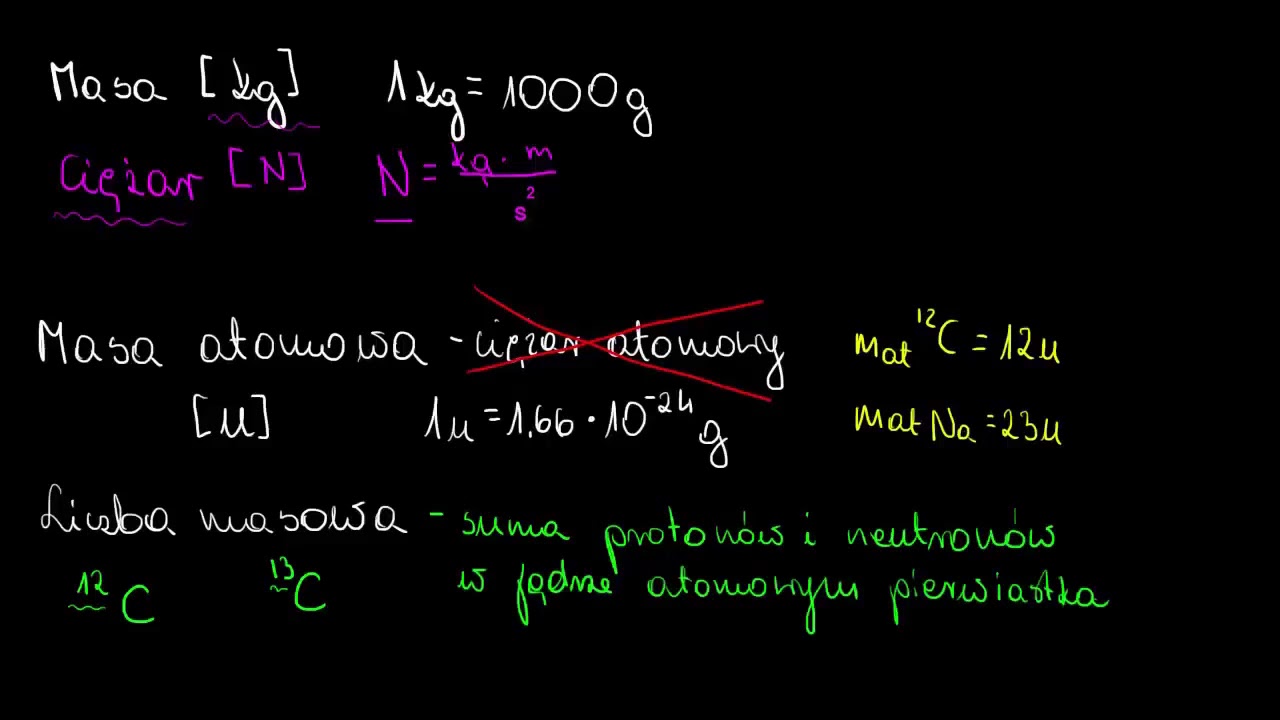 Masa [kg] 1kg = 1000g
Ciężar [N] N = kg · m / s²
Masa atomowa - ciężar atomowy mat ¹²C = 12u
[u] 1u = 1,66 · 10⁻²⁴ g mat Na = 23u
Liczba masowa - suma protonów i neutronów
w jądrze atomowym pierwiastka
¹²C ¹³C